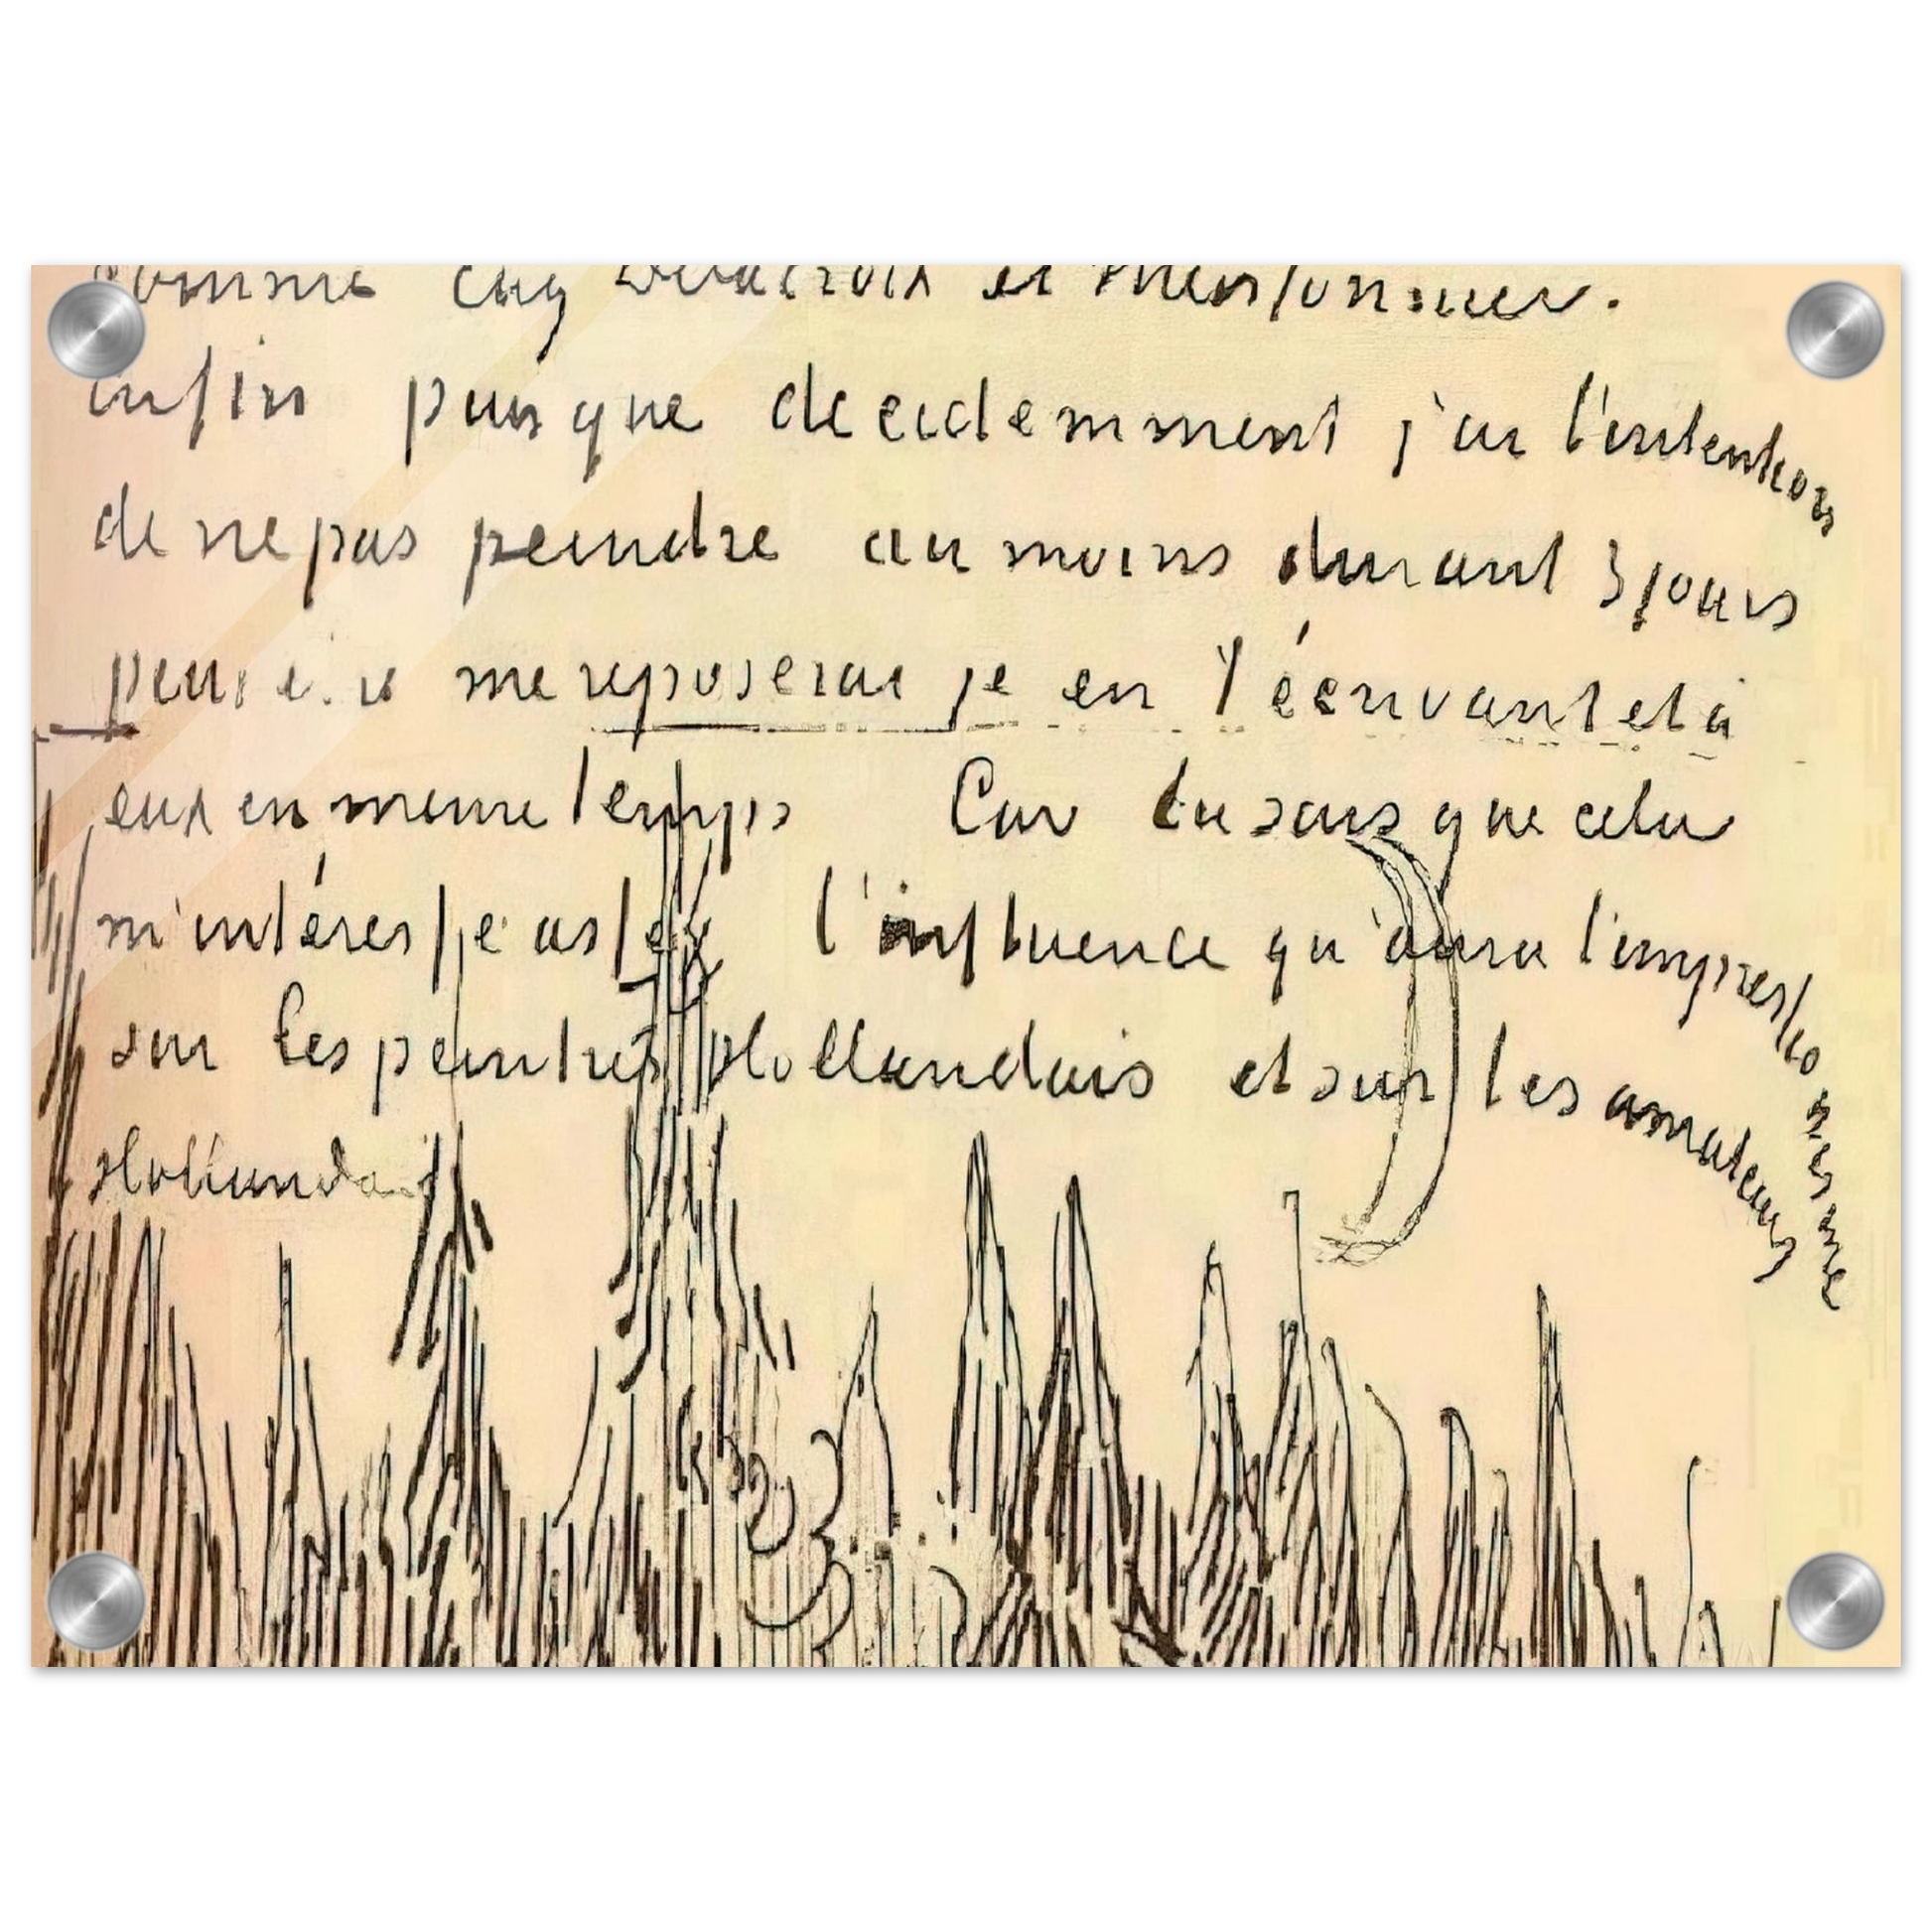 comme chez Delacroix et Meissonnier.
enfin puisque decidemment j'ai l'intention
de ne pas peindre au moins durant 3 jours
peut etre me reposerai je en t'écrivant et à
eux en meme temps Car tu sais que cela
m'intéresse assez l'influence qu'aura l'impressionnisme
sur les peintres Hollandais et sur les amateurs
Hollandais